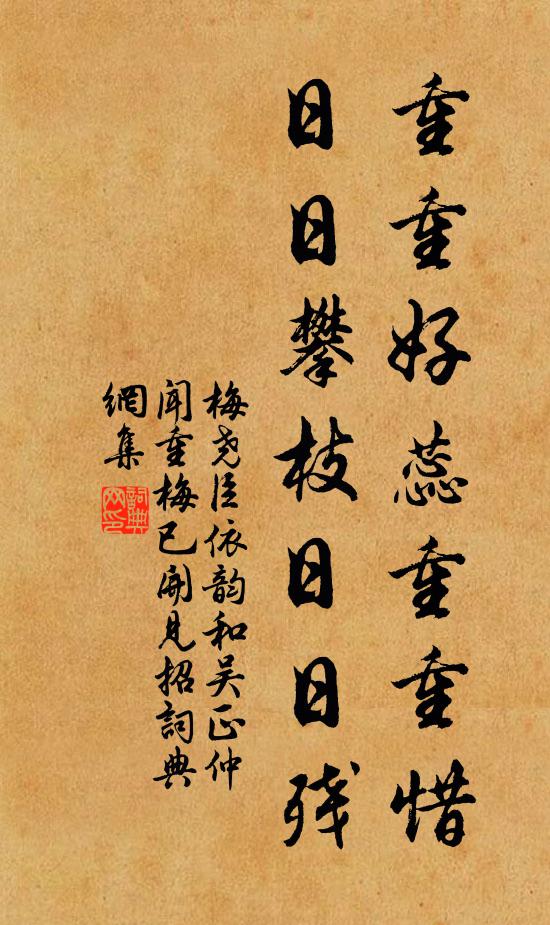 重重好蕊重重惜
日日攀枝日日残
梅尧臣依韵和吴正仲
闻重梅已开见招詞典
網集
詞典
网印